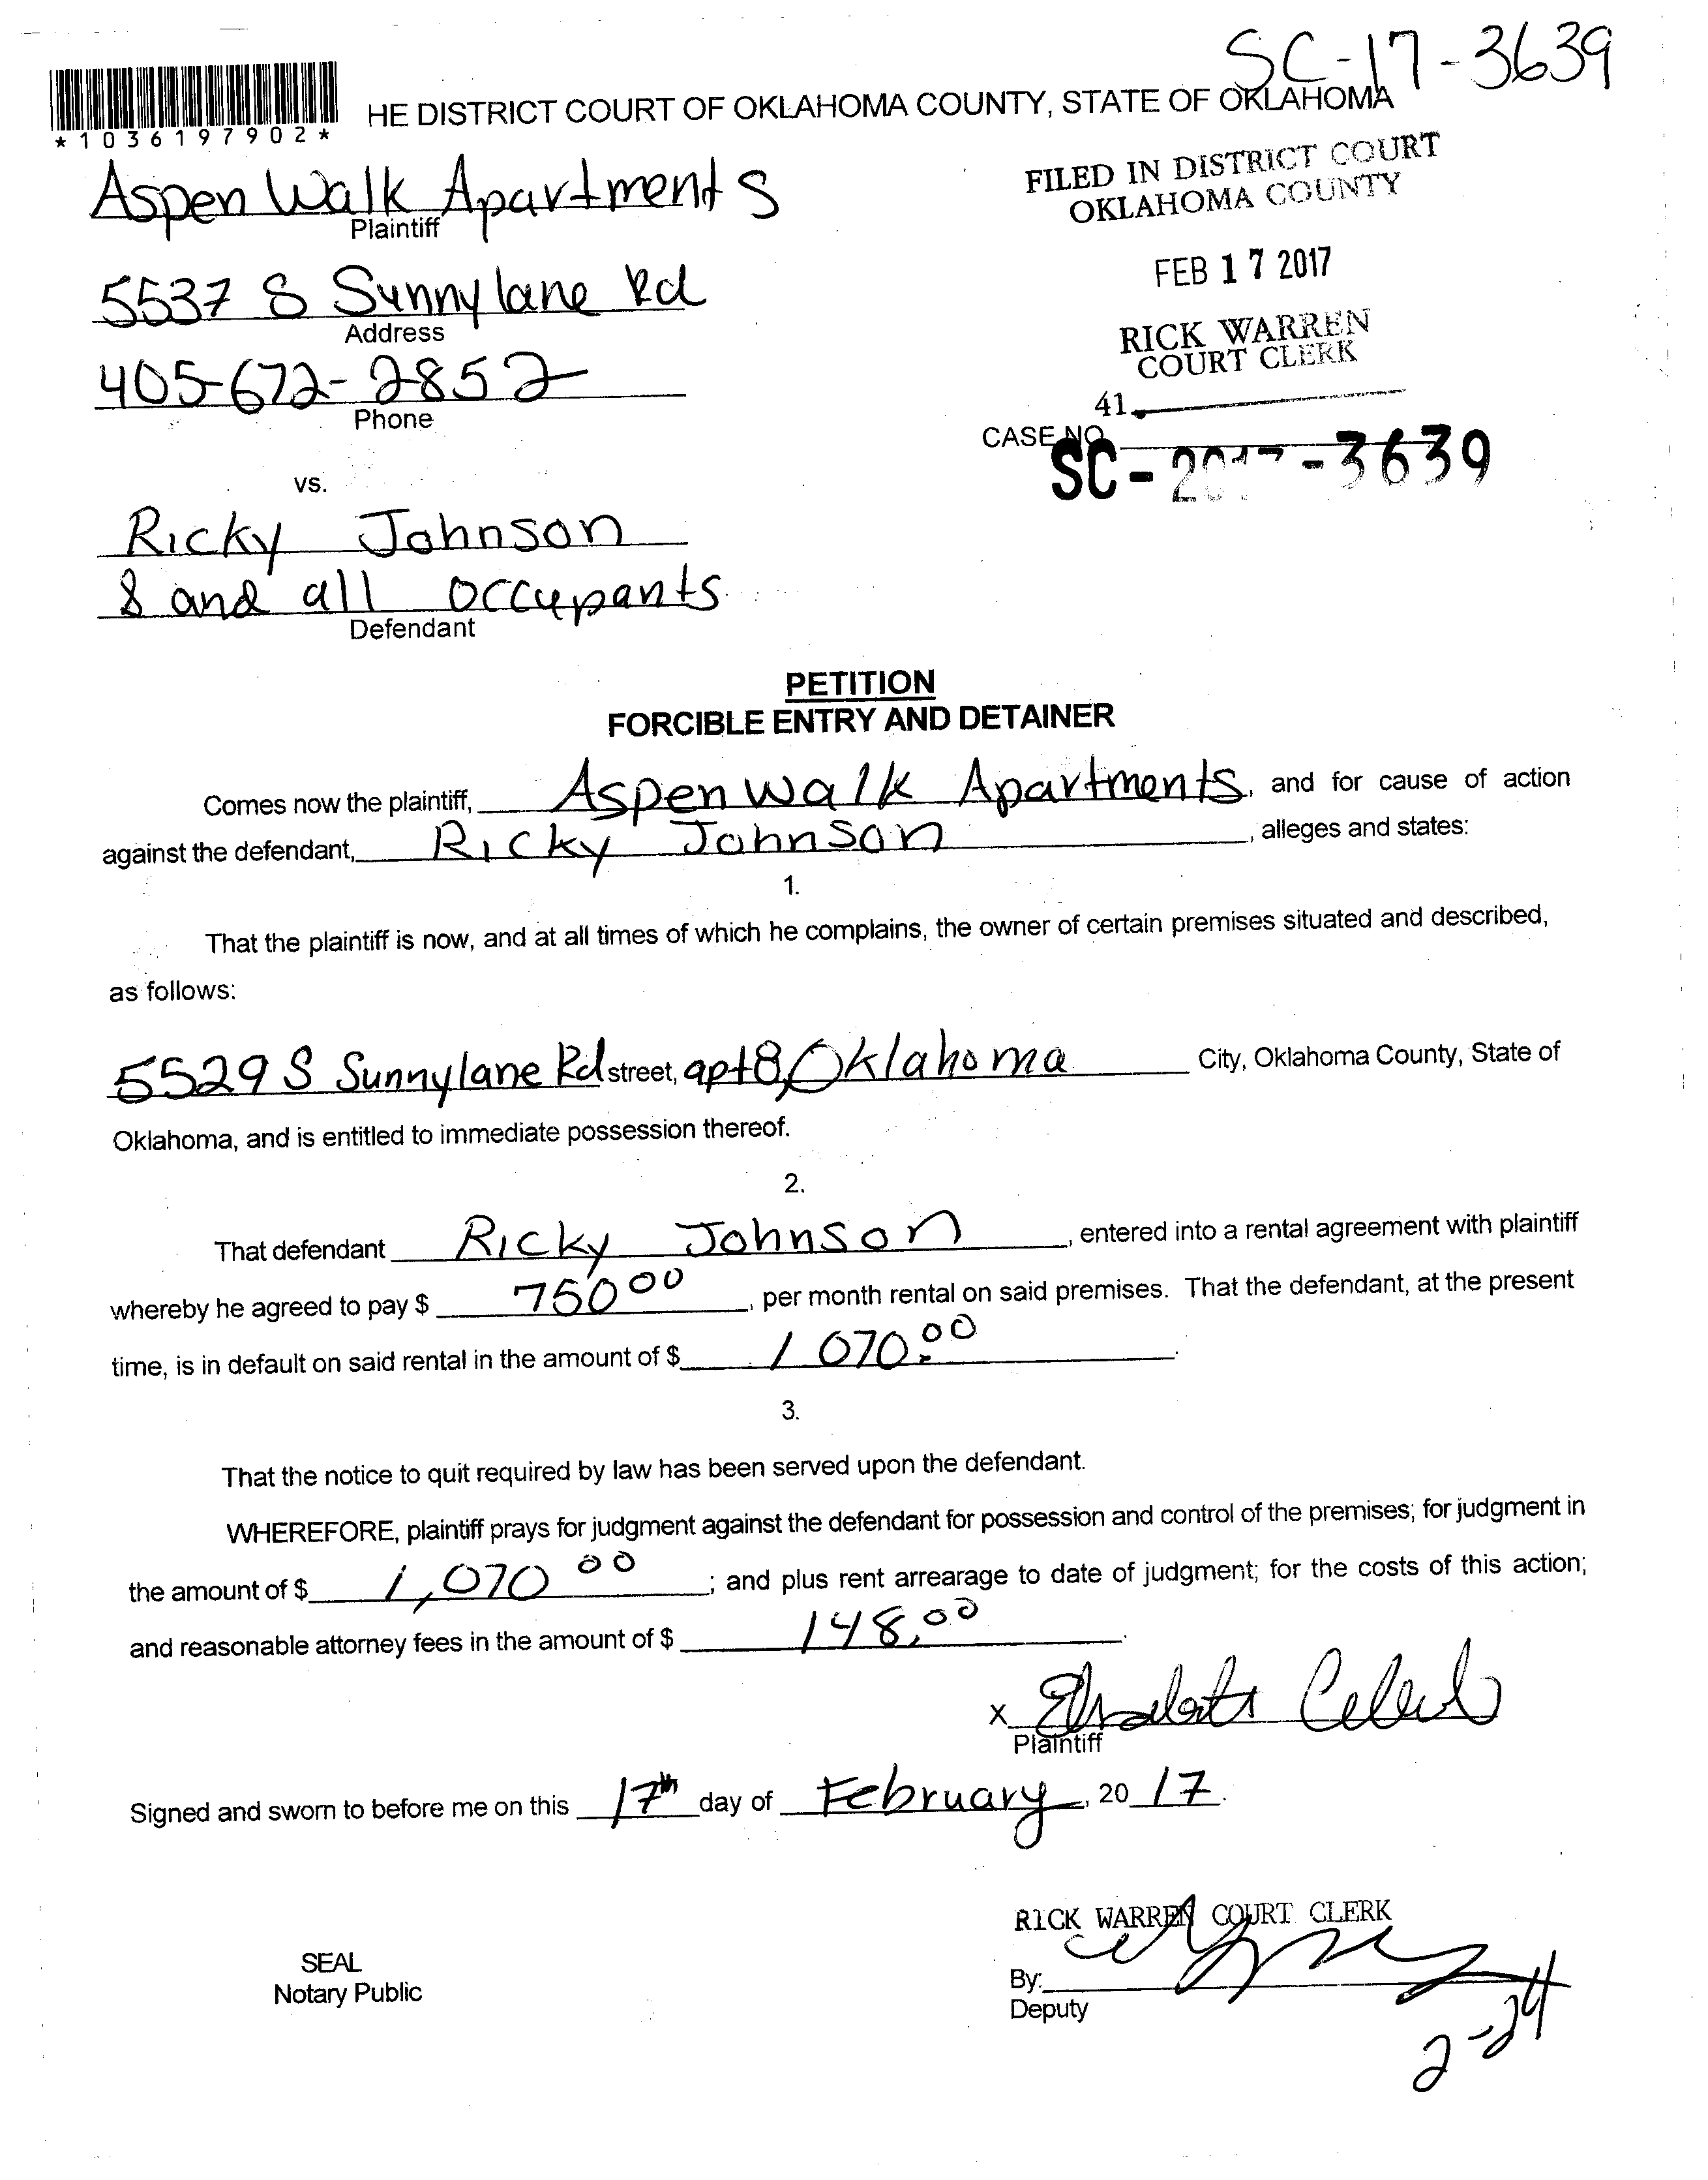 SC-17-3639
*1036197902*
HE DISTRICT COURT OF OKLAHOMA COUNTY, STATE OF OKLAHOMA
Aspen Walk Apartments
Plaintiff
FILED IN DISTRICT COURT
OKLAHOMA COUNTY
5537 S Sunnylane Rd
Address
FEB 17 2017
405-672-2852
Phone
RICK WARREN
COURT CLERK
41
CASE NO.
SC-2017-3639
vs.
Ricky Johnson
& and all occupants
Defendant
PETITION
FORCIBLE ENTRY AND DETAINER
Comes now the plaintiff, Aspen Walk Apartments, and for cause of action
against the defendant, Ricky Johnson, alleges and states:
1.
That the plaintiff is now, and at all times of which he complains, the owner of certain premises situated and described,
as follows:
5529 S Sunnylane Rd street, apt 8, Oklahoma City, Oklahoma County, State of
Oklahoma, and is entitled to immediate possession thereof.
2.
That defendant Ricky Johnson, entered into a rental agreement with plaintiff
whereby he agreed to pay $ 750 00, per month rental on said premises. That the defendant, at the present
time, is in default on said rental in the amount of $ 1070.00.
3.
That the notice to quit required by law has been served upon the defendant.
WHEREFORE, plaintiff prays for judgment against the defendant for possession and control of the premises; for judgment in
the amount of $ 1,070 00; and plus rent arrearage to date of judgment; for the costs of this action;
and reasonable attorney fees in the amount of $ 148.00.
X
Plaintiff
Signed and sworn to before me on this 17th day of February, 20 17.
RICK WARREN COURT CLERK
SEAL
Notary Public
By:
Deputy
2-24